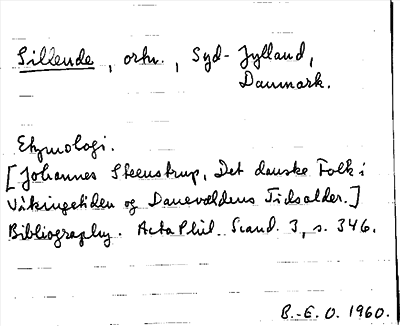 Sillende, orkn., Syd-Jylland,
Danmark.
Etymologi.
[Johannes Steenstrup, Det danske Folk i
Vikingetiden og Danevældens Tidsalder.]
Bibliography. Acta Phil. Scand. 3, s. 346.
B.-E. O. 1960.